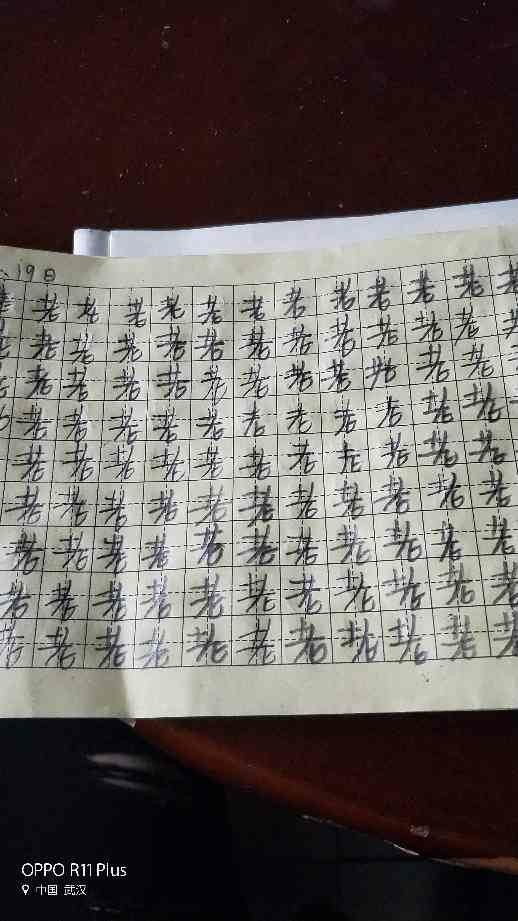 19日
老老老老老老老老老老老老
老老老老老老老老老老老
老老老老老老老老老老老
老老老老老老老老老老老
老老老老老老老老老老老
老老老老老老老老老老老
老老老老老老老老老老老
老老老老老老老老老老老
老老老老老老老老老老老
OPPO R11 Plus
中国 武汉